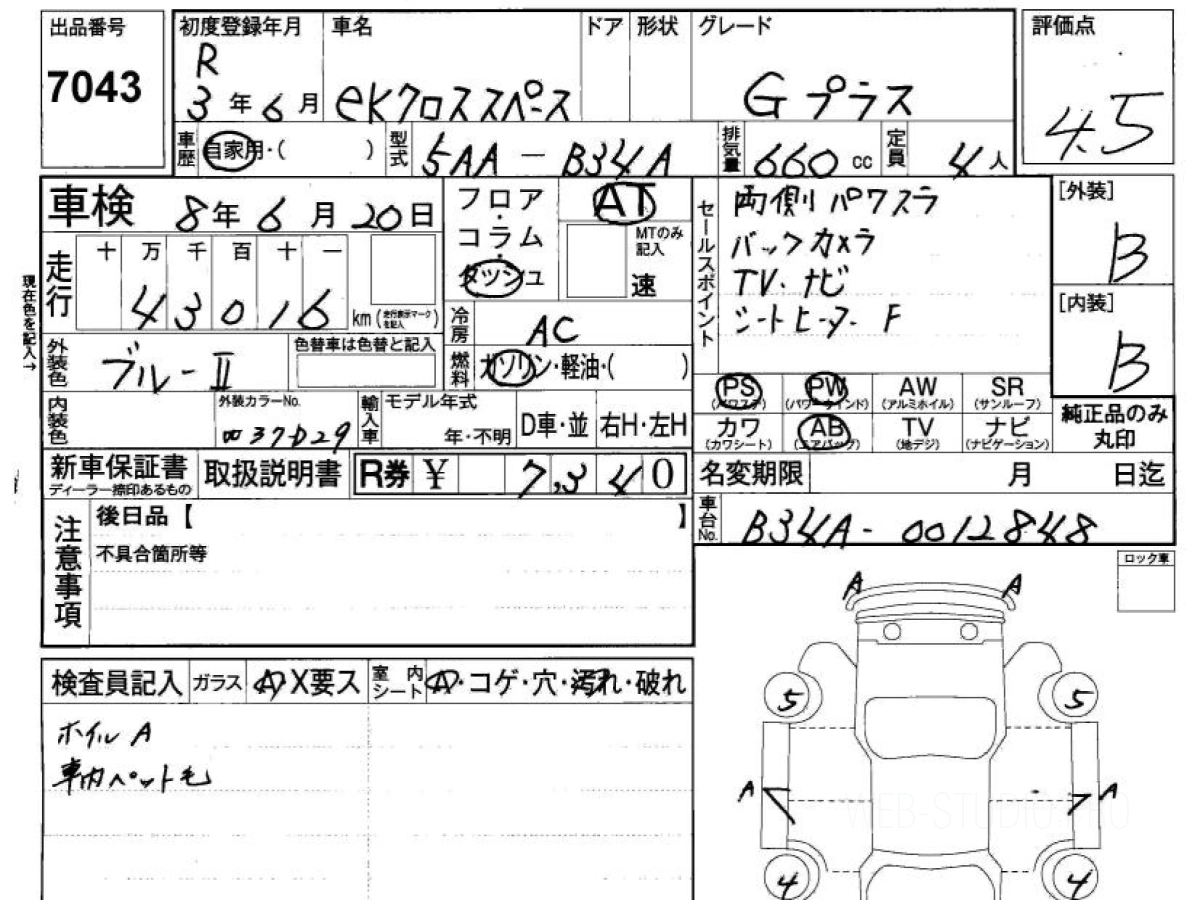 出品番号
7043
初度登録年月
R
3年6月
車名
eKクロススペース
ドア
形状
グレード
Gプラス
評価点
4.5
車歴
自家用・(　　　)
型式
5AA-B34A
排気量
660 cc
定員
4人
車検
8年6月20日
フロア・コラム・ダッシュ
AT
MTのみ記入
速
セールスポイント
両側パワスラ
バックカメラ
TV・ナビ
シートヒーター F
[外装]
B
[内装]
B
現在色を記入→
走行
十 万 千 百 十 一
43016
km(走行表示マークを記入)
冷房
AC
燃料
ガソリン・軽油・(　　　)
外装色
ブルーII
色替車は色替と記入
内装色
外装カラーNo.
37D29
輸入車
モデル年式
年・不明
D車・並
右H・左H
PS
(パワステ)
PW
(パワーウインド)
AW
(アルミホイル)
SR
(サンルーフ)
カワ
(カワシート)
AB
(エアバッグ)
TV
(地デジ)
ナビ
(ナビゲーション)
純正品のみ丸印
新車保証書
ディーラー捺印あるもの
取扱説明書
R券 ¥ 7,340
名変期限　月　日迄
車台No.
B34A-0012848
注意事項
後日品【　】
不具合箇所等
ロック車
A A
5 5
A A
4 4
検査員記入
ガラス
A・X要ス
室内シート
A・コゲ・穴・汚れ・破れ
ホイル A
車内ペット毛
WEB-STUDIO PRO